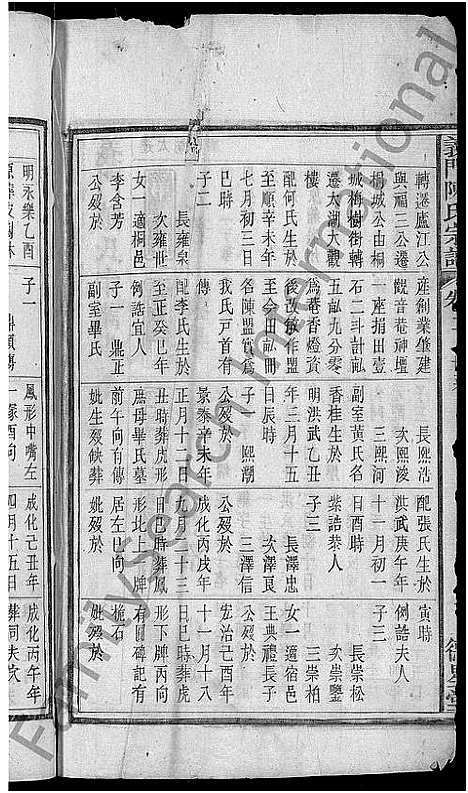 義門陳氏宗譜
轉遷廬江公
與福三公遷
桐城公由桐
城梅樹街轉
遷太湖大觀
樓
配何氏生於
至順辛未年
七月初三日
巳時
子二
長雍泉
次雍世
女一適桐邑
李含芳
公殁於
產創業兼建
觀音菴神壇
一座捐田壹
石二斗計畝
五畝九分零
為菴香燈資
後改敏作盟
至今田畝冊
名陳盟實為
我氏戸首有
傳
配李氏生於
至正癸巳年
何誥宜人
子一 鼎正
副室畢氏
長熙浩
次熙淩
三熙河
副室黃氏名
香桂生於
明洪武乙丑
年三月十五
日辰時
子一 熙潮
公殁於
景泰辛未年
正月十二日
丑時葬虎形
庶母畢氏墓
前午向有傳
妣生殁缺葬
配張氏生於
洪武庚午年
十一月初一
日酉時
葉誥恭人
子三
長澤忠
次澤艮
三澤信
公殁於
成化丙戌年
九月二十三
日巳時葬鳳
形北上首牌
居左巳向
妣殁於
寅時
例誥夫人
子三
長崇松
次崇鑒
三崇柏
女一適宿邑
王典禮長子
公殁於
宏治己酉年
十一月十八
日巳時葬虎
形下牌丙向
有圓碑記有
桅石
妣殁於
明永樂乙酉
子一
鳳形中嘴左
一塚酉向
成化己丑年
四月十五日
成化丙午年
葬祠夫穴